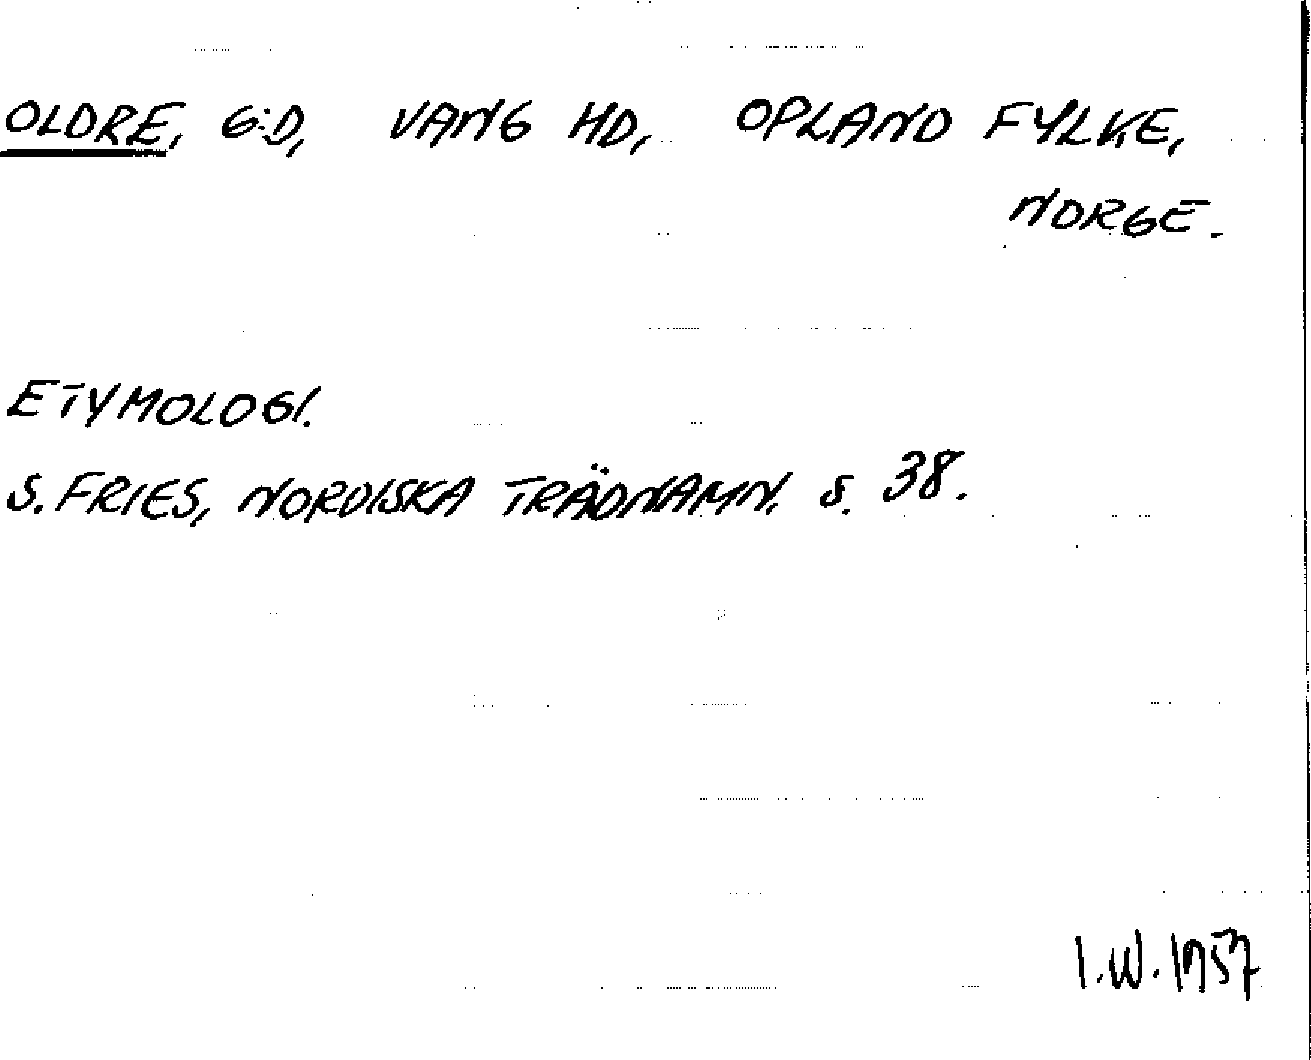 OLDRE, G:D, VANG HD, OPLAND FYLKE,
NORGE.
ETYMOLOGI.
S. FRIES, NORDISKA TRÄDNAMN. S. 38.
I.W. 1957